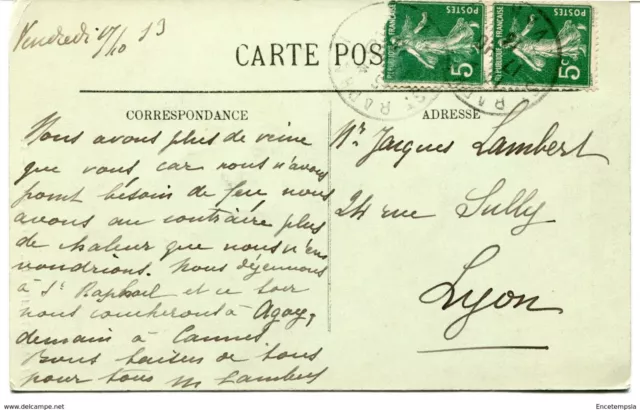 Vendredi 17/10 13
CARTE POS
POSTES
POSTES
5c
5c
CORRESPONDANCE
ADRESSE
Nous avons plus de veine
que vous car nous n'avons
point besoin de feu nous
avons au contraire plus
de chaleur que nous n'en
voudrions. Nous déjeunons
à St Raphael et ce soir
nous coucherons à Agay,
demain à Cannes
Bons baisers de tous
pour tous M Lambert
Mr Jacques Lambert
24 rue Sully
Lyon
www.delcampe.net
Encretempsia